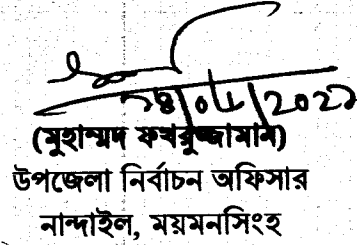 (মুহাম্মদ ফখরুজ্জামান)
উপজেলা নির্বাচন অফিসার
নান্দাইল, ময়মনসিংহ